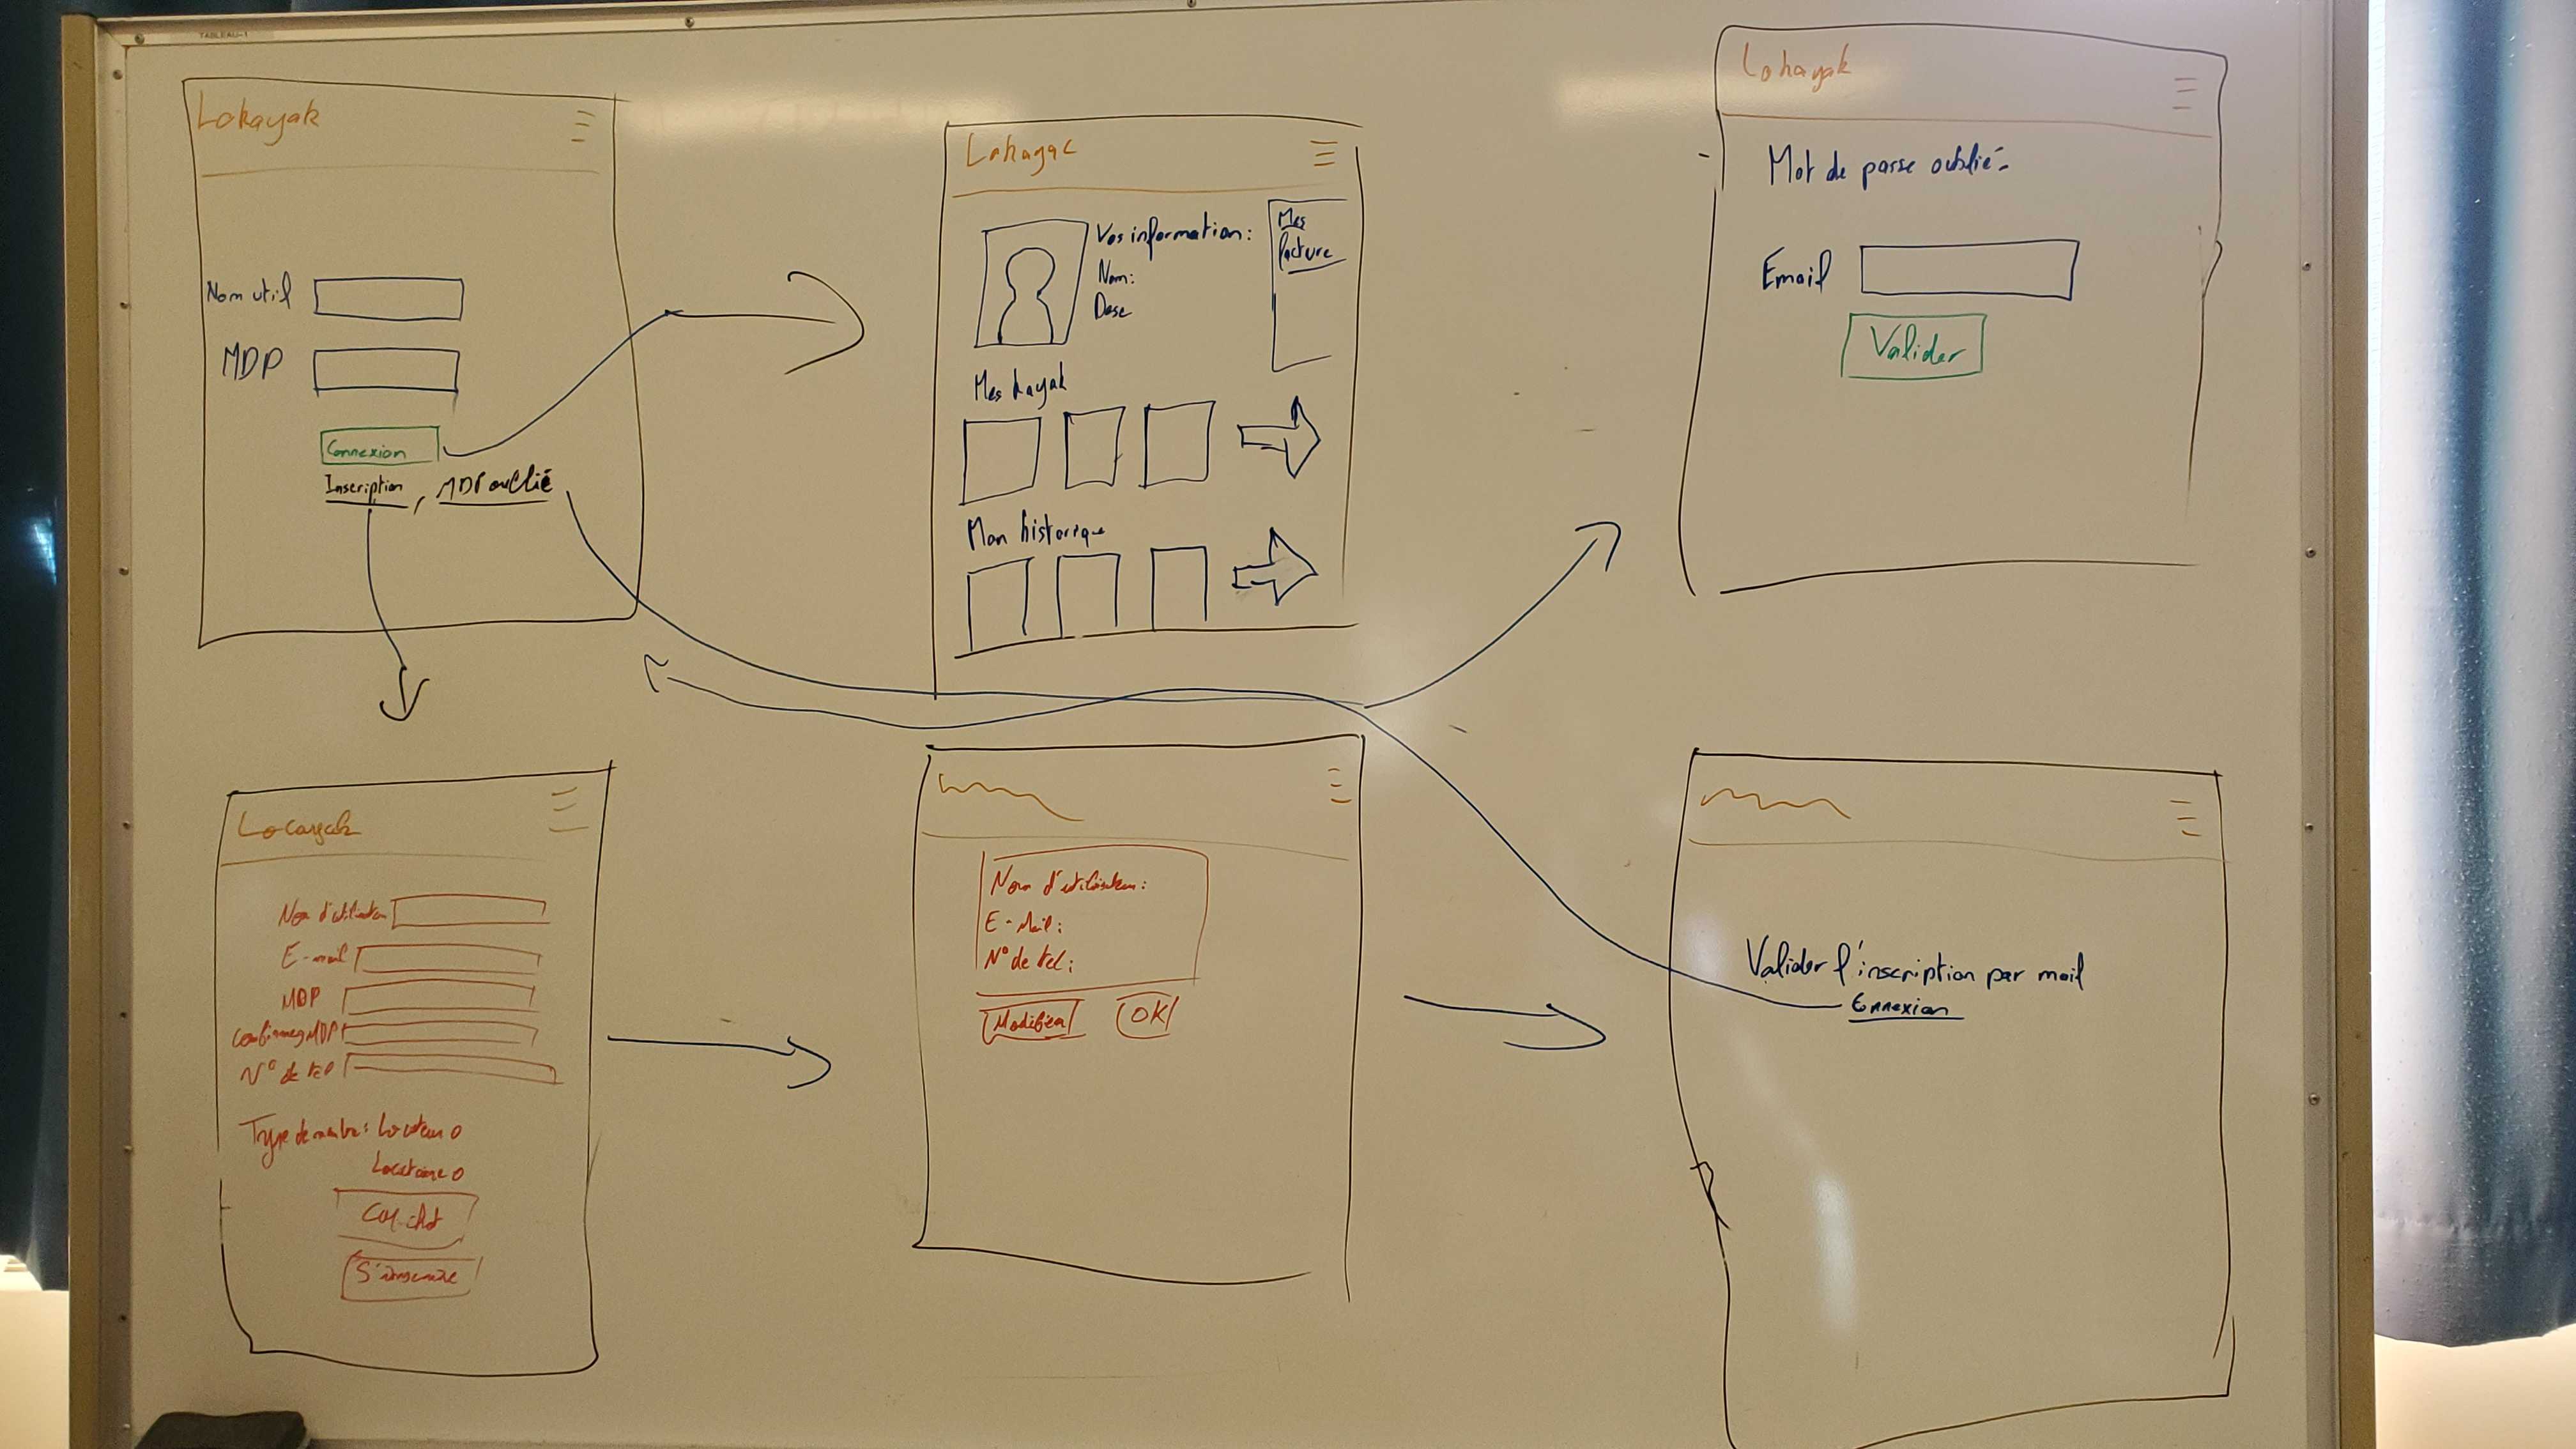 TABLEAU-1
Lokayak
Nom util
MDP
Connexion
Inscription, MDP oublié
Lokayac
Vos information:
Nom:
Mes
facture
Mes kayak
Mon historique
Lokayak
Mot de passe oublié
Email
Valider
Locayak
Nom d'utilisateur
E-mail
MDP
N° de tel
Type de membre: Locateur
Locataire
S'inscrire
Nom d'utilisateur:
E-Mail:
N° de tel:
Modifier OK
Valider l'inscription par mail
Connexion